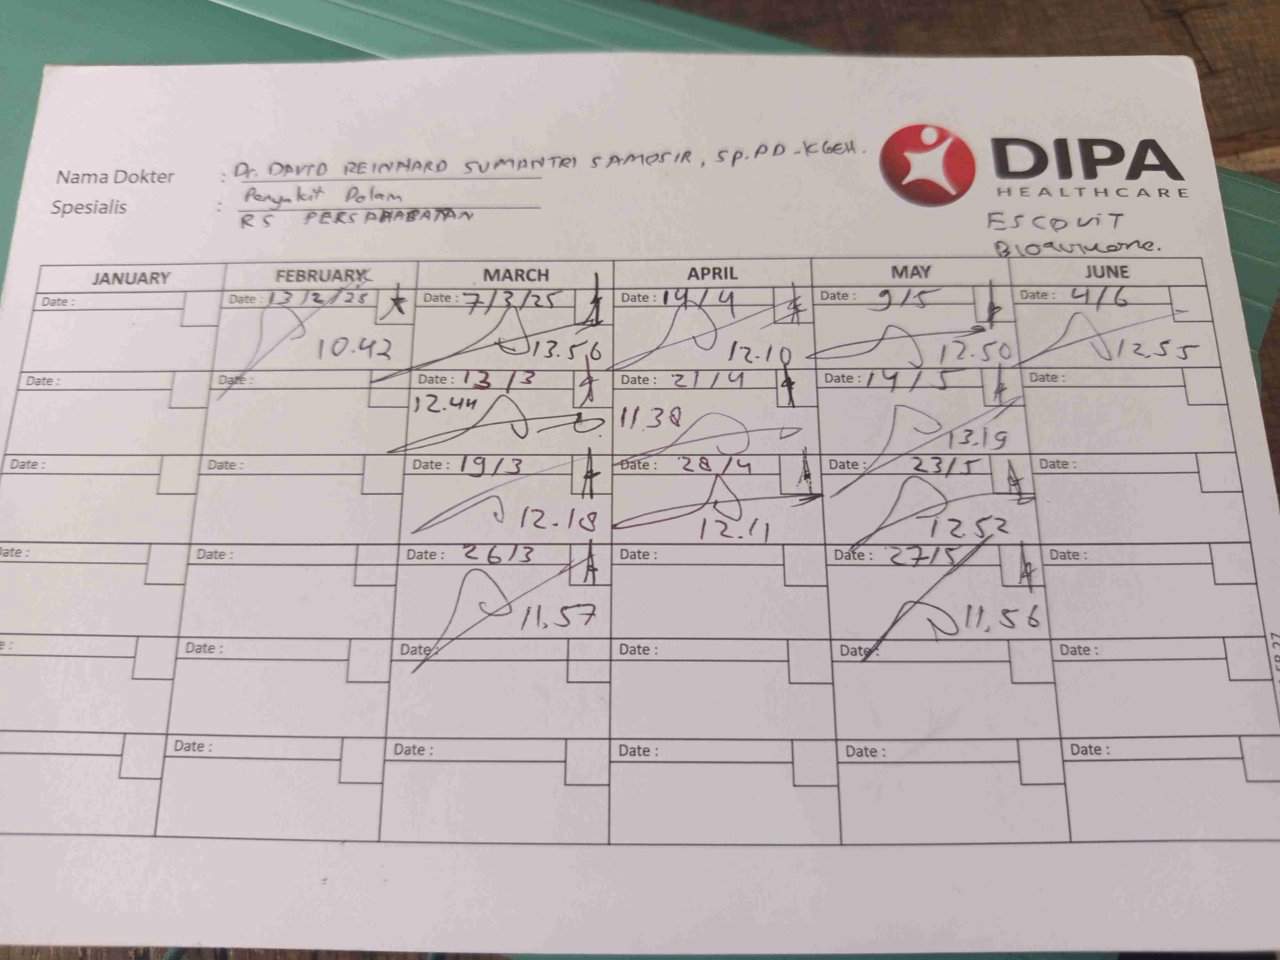 Nama Dokter : Dr. DAVID REINHARD SUMANTRI SAMOSIR, SP.PD-KGEH.
Spesialis : Penyakit Dalam
RS PERSAHABATAN
DIPA
HEALTHCARE
ESCOVIT
JANUARY FEBRUARY MARCH APRIL MAY JUNE
Date : Date : 13/2/25 Date : 7/3/25 Date : 14/4 Date : 9/5 Date : 4/6
10.42 13.56 12.10 12.50 12.55
Date : Date : Date : 13/3 Date : 21/4 Date : 14/5 Date :
12.44 11.38 13.19
Date : Date : Date : 19/3 Date : 28/4 Date : 23/5 Date :
12.18 12.11 12.52
Date : Date : Date : 26/3 Date : Date : 27/5 Date :
11.57 11.56
Date : Date : Date : Date : Date :
Date : Date : Date : Date : Date :